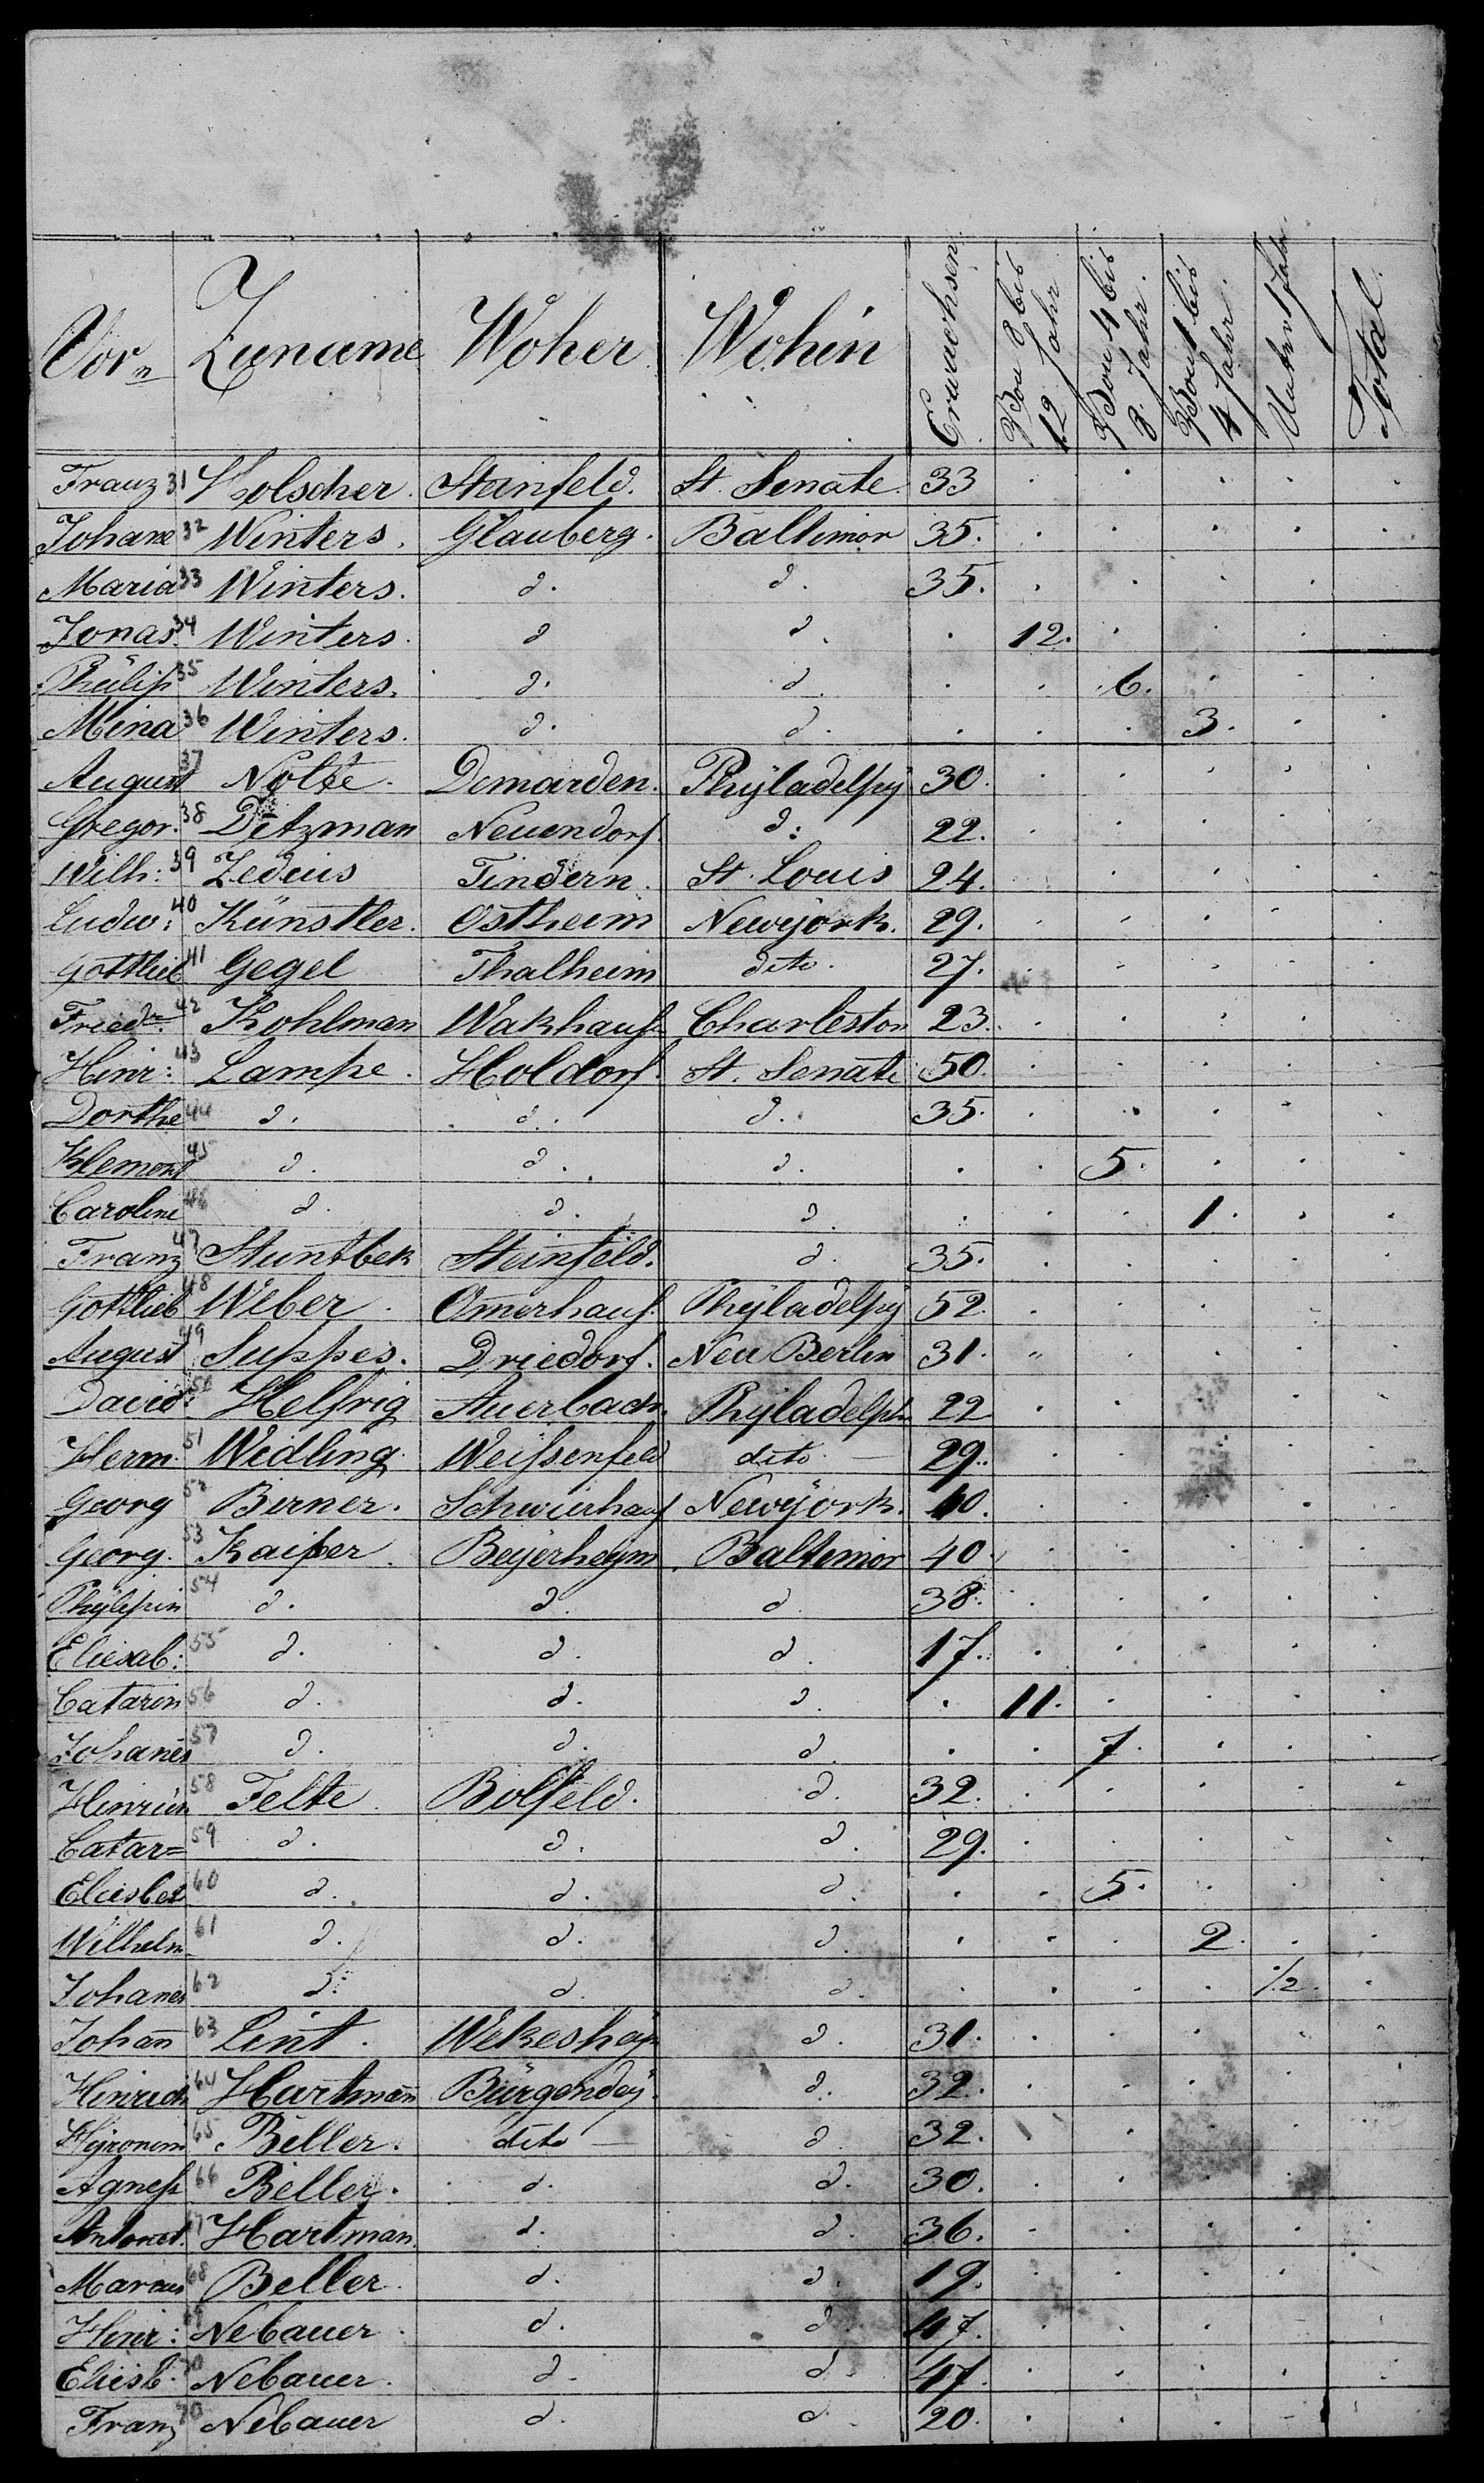 Vor= Zuname Woher Wohin Erwachsen Von 8 bis 12 Jahr Von 4 bis 8 Jahr. Von 1 bis 4 Jahr. Unter 1 Jahr Total.
Franz 31 Holscher. Steinfeld. St. Senate. 33
Johane 32 Winters. Glauberg. Baltimor 35.
Maria 33 Winters. d. d. 35.
Jonas. 34 Winters. d d. 12.
Philip 35 Winters. d. d. 6.
Mina 36 Winters. d. d. 3.
August 37 Nolte. Demarden. Phÿladelpÿ 30.
Gregor. 38 Ditzman Neuendorf. d: 22.
Wilh: 39 Zedeus Tindern. St. Louis 24.
Ludw: 40 Künstler. Ostheim Newÿork. 29.
Gottlieb 41 Gegel Thalheim dito. 27.
Friedr. 42 Kohlman Wakhauß Charleston 23.
Hinr: 43 Lampe. Holdorf. St. Senate 50.
Dorthe 44 d. d. d. 35.
Klement 45 d. d. d. 5.
Caroline 46 d. d. d. 1.
Franz 47 Stuntbek Steinfeld. d. 35.
Gottlieb 48 Weber. Omerhauf. Phÿladelpÿ 52.
August 49 Suppes. Driedorf. Neu Berlin 31.
David: 50 Helfrig Auerbach. Phÿladelph 22
Herm. 51 Widling. Weißenfeld dito 29.
Georg 52 Birner. Schwierhauf Newÿork. 40.
Georg. 53 Kaißer. Beÿerheym Baltimor 40.
Phÿlipin 54 d. d. d 38.
Eliesab: 55 d. d. d. 17.
Catarin 56 d. d. d. 11.
Johanes 57 d. d. d. 7.
Hinrich 58 Felte. Bolfeld. d. 32.
Catar= 59 d. d. d. 29.
Eliesbet 60 d. d. d. 5.
Wilhelm 61 d. d. d. 2.
Johanes 62 d. d. d. 1/2.
Johan̄ 63 Lint. d. 31.
Hinrich 64 Hartman̄ Bürgendeÿ. d. 32.
Hÿronim 65 Beller. dito d. 32.
Agneß 66 Beller. d. d. 30.
Antonet. 67 Hartman. d. d. 36.
Marcus 68 Beller. d. d. 19.
Hinr: 69 Nebauer. d. d. 47.
Eliesb. 70 Nebauer. d. d. 47.
Franz 70 Nebauer d. d. 20.